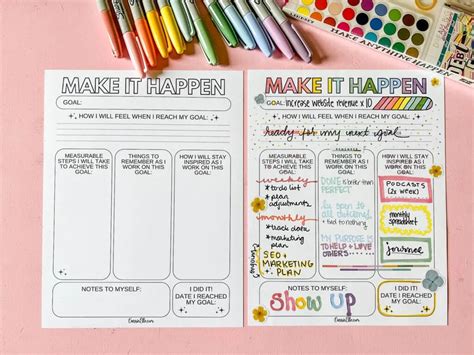 MAKE ANYTHING HAPPEN
MAKE IT HAPPEN
GOAL:
HOW I WILL FEEL WHEN I REACH MY GOAL:
MEASURABLE
STEPS I WILL TAKE
TO ACHIEVE THIS
GOAL:
THINGS TO
REMEMBER AS I
WORK ON THIS
GOAL:
HOW I WILL STAY
INSPIRED AS I
WORK ON THIS
GOAL:
NOTES TO MYSELF:
I DID IT!
DATE I REACHED
MY GOAL:
MAKE IT HAPPEN
GOAL: increase website revenue x 10
HOW I WILL FEEL WHEN I REACH MY GOAL:
ready for my next goal
MEASURABLE
STEPS I WILL TAKE
TO ACHIEVE THIS
GOAL:
weekly
* to do list
* plan
adjustments
monthly
* track data
* marketing
plan
SEO +
MARKETING
PLAN
REMEMBER
THINGS TO
REMEMBER AS I
WORK ON THIS
GOAL:
DONE is better than
PERFECT
be open to
all outcomes
+ tied to nothing
MY PURPOSE IS
TO HELP + LOVE
OTHERS
HOW I WILL STAY
INSPIRED AS I
WORK ON THIS
GOAL:
PODCASTS
(2x week)
monthly
spreadsheet
journal
MAKE IT HAPPEN
NOTES TO MYSELF:
Show UP
I DID IT!
DATE I REACHED
MY GOAL: